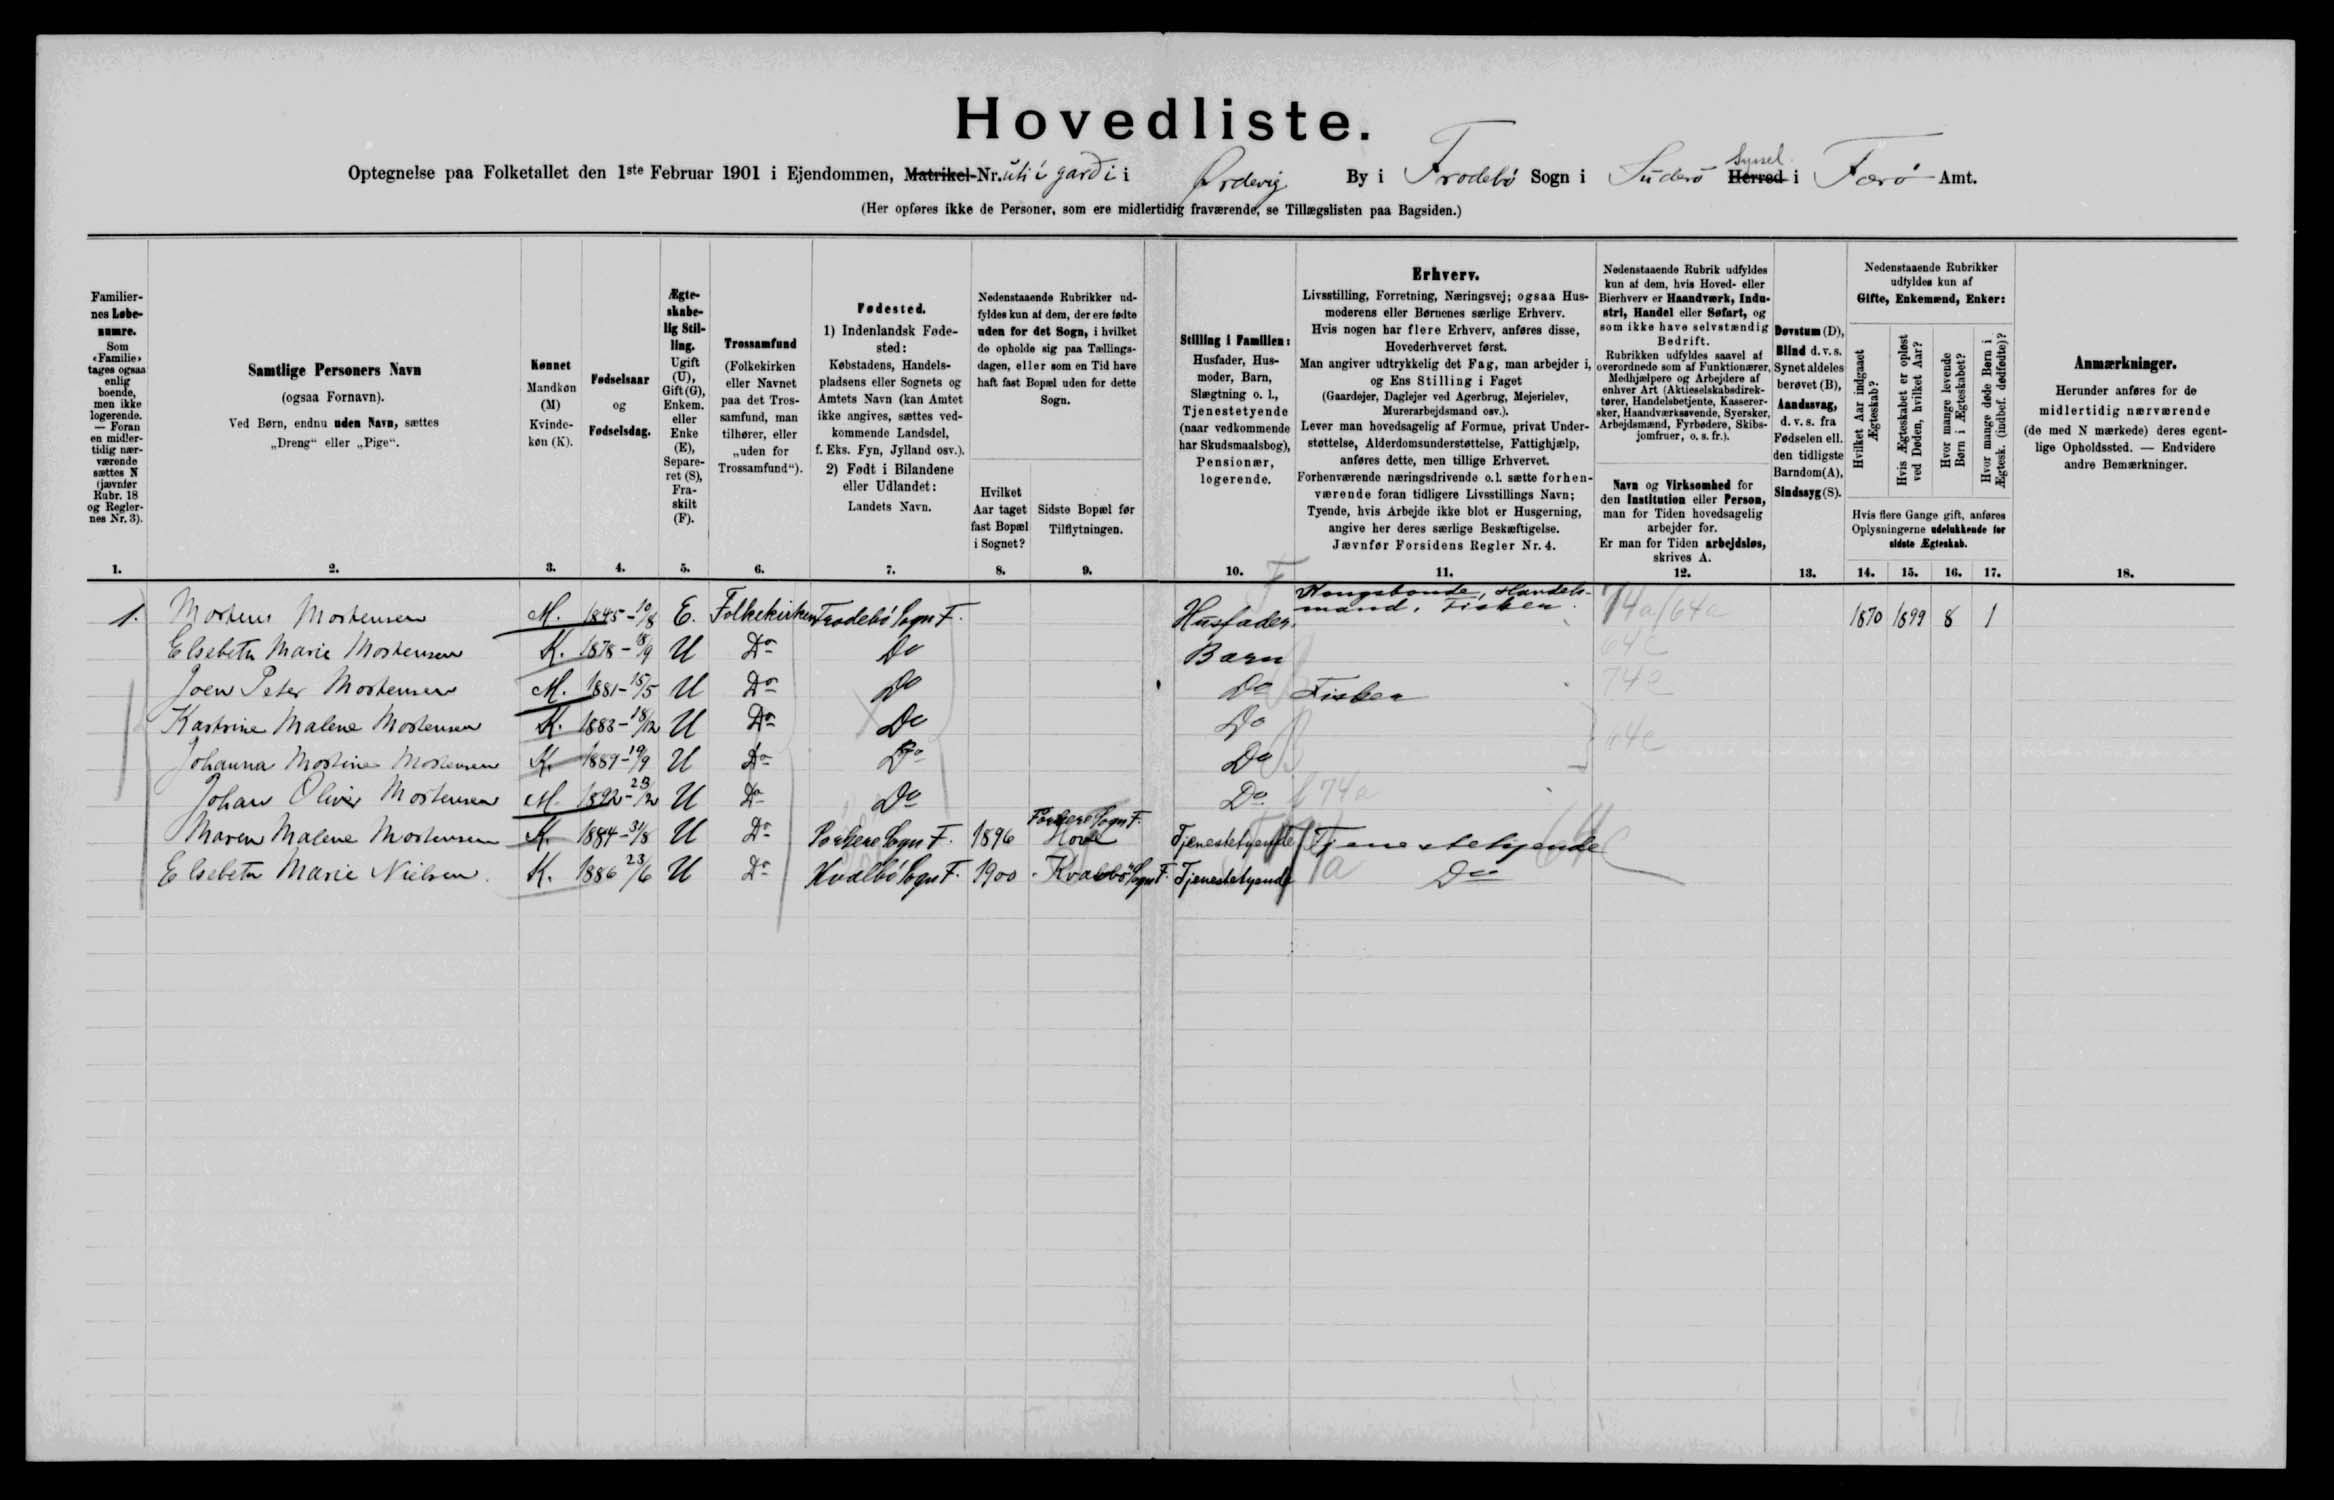 Hovedliste.
Optegnelse paa Folketallet den 1ste Februar 1901 i Ejendommen, Matrikel-Nr. úti í garði i Ørdevig By i Frodebø Sogn i Suderø Herred Syssel i Færø Amt.
(Her opføres ikke de Personer, som ere midlertidig fraværende, se Tillægslisten paa Bagsiden.)
Familiernes Løbenumre. Som «Familie» tages ogsaa enlig boende, men ikke logerende. — Foran en midlertidig nærværende sættes N (jævnfør Rubr. 18 og Reglernes Nr. 3).
Samtlige Personers Navn (ogsaa Fornavn). Ved Børn, endnu uden Navn, sættes „Dreng“ eller „Pige“.
Kønnet Mandkøn (M) Kvindekøn (K).
Fødselsaar og Fødselsdag.
Ægteskabelig Stilling. Ugift (U), Gift (G), Enkem. eller Enke (E), Separeret (S), Fraskilt (F).
Trossamfund (Folkekirken eller Navnet paa det Trossamfund, man tilhører, eller „uden for Trossamfund“).
Fødested. 1) Indenlandsk Fødested: Købstadens, Handelspladsens eller Sognets og Amtets Navn (kan Amtet ikke angives, sættes vedkommende Landsdel, f. Eks. Fyn, Jylland osv.). 2) Født i Bilandene eller Udlandet: Landets Navn.
Nedenstaaende Rubrikker udfyldes kun af dem, der ere fødte uden for det Sogn, i hvilket de opholde sig paa Tællingsdagen, eller som en Tid have haft fast Bopæl uden for dette Sogn.
Hvilket Aar taget fast Bopæl i Sognet?
Sidste Bopæl før Tilflytningen.
Stilling i Familien: Husfader, Husmoder, Barn, Slægtning o. l., Tjenestetyende (naar vedkommende har Skudsmaalsbog), Pensionær, logerende.
Erhverv.
Livsstilling, Forretning, Næringsvej; ogsaa Husmoderens eller Børnenes særlige Erhverv.
Hvis nogen har flere Erhverv, anføres disse, Hovederhvervet først.
Man angiver udtrykkelig det Fag, man arbejder i, og Ens Stilling i Faget (Gaardejer, Daglejer ved Agerbrug, Mejerielev, Murerarbejdsmand osv.).
Lever man hovedsagelig af Formue, privat Understøttelse, Alderdomsunderstøttelse, Fattighjælp, anføres dette, men tillige Erhvervet.
Forhenværende næringsdrivende o. l. sætte forhenværende foran tidligere Livsstillings Navn; Tyende, hvis Arbejde ikke blot er Husgerning, angive her deres særlige Beskæftigelse.
Jævnfør Forsidens Regler Nr. 4.
Nedenstaaende Rubrik udfyldes kun af dem, hvis Hoved- eller Bierhverv er Haandværk, Industri, Handel eller Søfart, og som ikke have selvstændig Bedrift.
Rubrikken udfyldes saavel af overordnede som af Funktionærer, Medhjælpere og Arbejdere af enhver Art (Aktieselskabsdirektører, Handelsbetjente, Kasserersker, Haandværkssvende, Syersker, Arbejdsmænd, Fyrbødere, Skibsjomfruer, o. s. fr.).
Navn og Virksomhed for den Institution eller Person, man for Tiden hovedsagelig arbejder for.
Er man for Tiden arbejdsløs, skrives A.
Døvstum (D), Blind d. v. s. Synet aldeles berøvet (B), Aandssvag, d. v. s. fra Fødselen ell. den tidligste Barndom (A), Sindssyg (S).
Nedenstaaende Rubrikker udfyldes kun af Gifte, Enkemænd, Enker:
Hvilket Aar indgaaet Ægteskab?
Hvis Ægteskabet er opløst ved Døden, hvilket Aar?
Hvor mange levende Børn i Ægteskabet?
Hvor mange døde Børn i Ægtesk. (indbef. dødfødte)?
Hvis flere Gange gift, anføres Oplysningerne udelukkende for sidste Ægteskab.
Anmærkninger. Herunder anføres for de midlertidig nærværende (de med N mærkede) deres egentlige Opholdssted. — Endvidere andre Bemærkninger.
1. 2. 3. 4. 5. 6. 7. 8. 9. 10. 11. 12. 13. 14. 15. 16. 17. 18.
1. Mortens Mortensen M. 1845-10/8 E. Folkekirken Frodebø Sogn F. Husfader. Kongsbonde, Handelsmand, Fisker. 74a/64a 1870 1899 8 1
Elsebeth Marie Mortensen K. 1878-18/9 U Do Do Barn 64c
Joen Peter Mortensen M. 1881-15/5 U Do Do Do Fisker 74c
Kastrine Malene Mortensen K. 1883-18/12 U Do Do Do
Johanna Mostine Mortensen K. 1889-19/9 U Do Do Do 64c
Johan Oliver Mortensen M. 1892-23/2 U Do Do Do 74a
Maren Malene Mortensen K. 1884-31/8 U Do Porkere Sogn F. 1896 Porkere Sogn F. Hove Tjenestetyende Tjenestetyende
Elsebeth Marie Nielsen. K. 1886 23/6 U Do Hvalbø Sogn F. 1900 Kvalbø Sogn F. Tjenestetyende Do